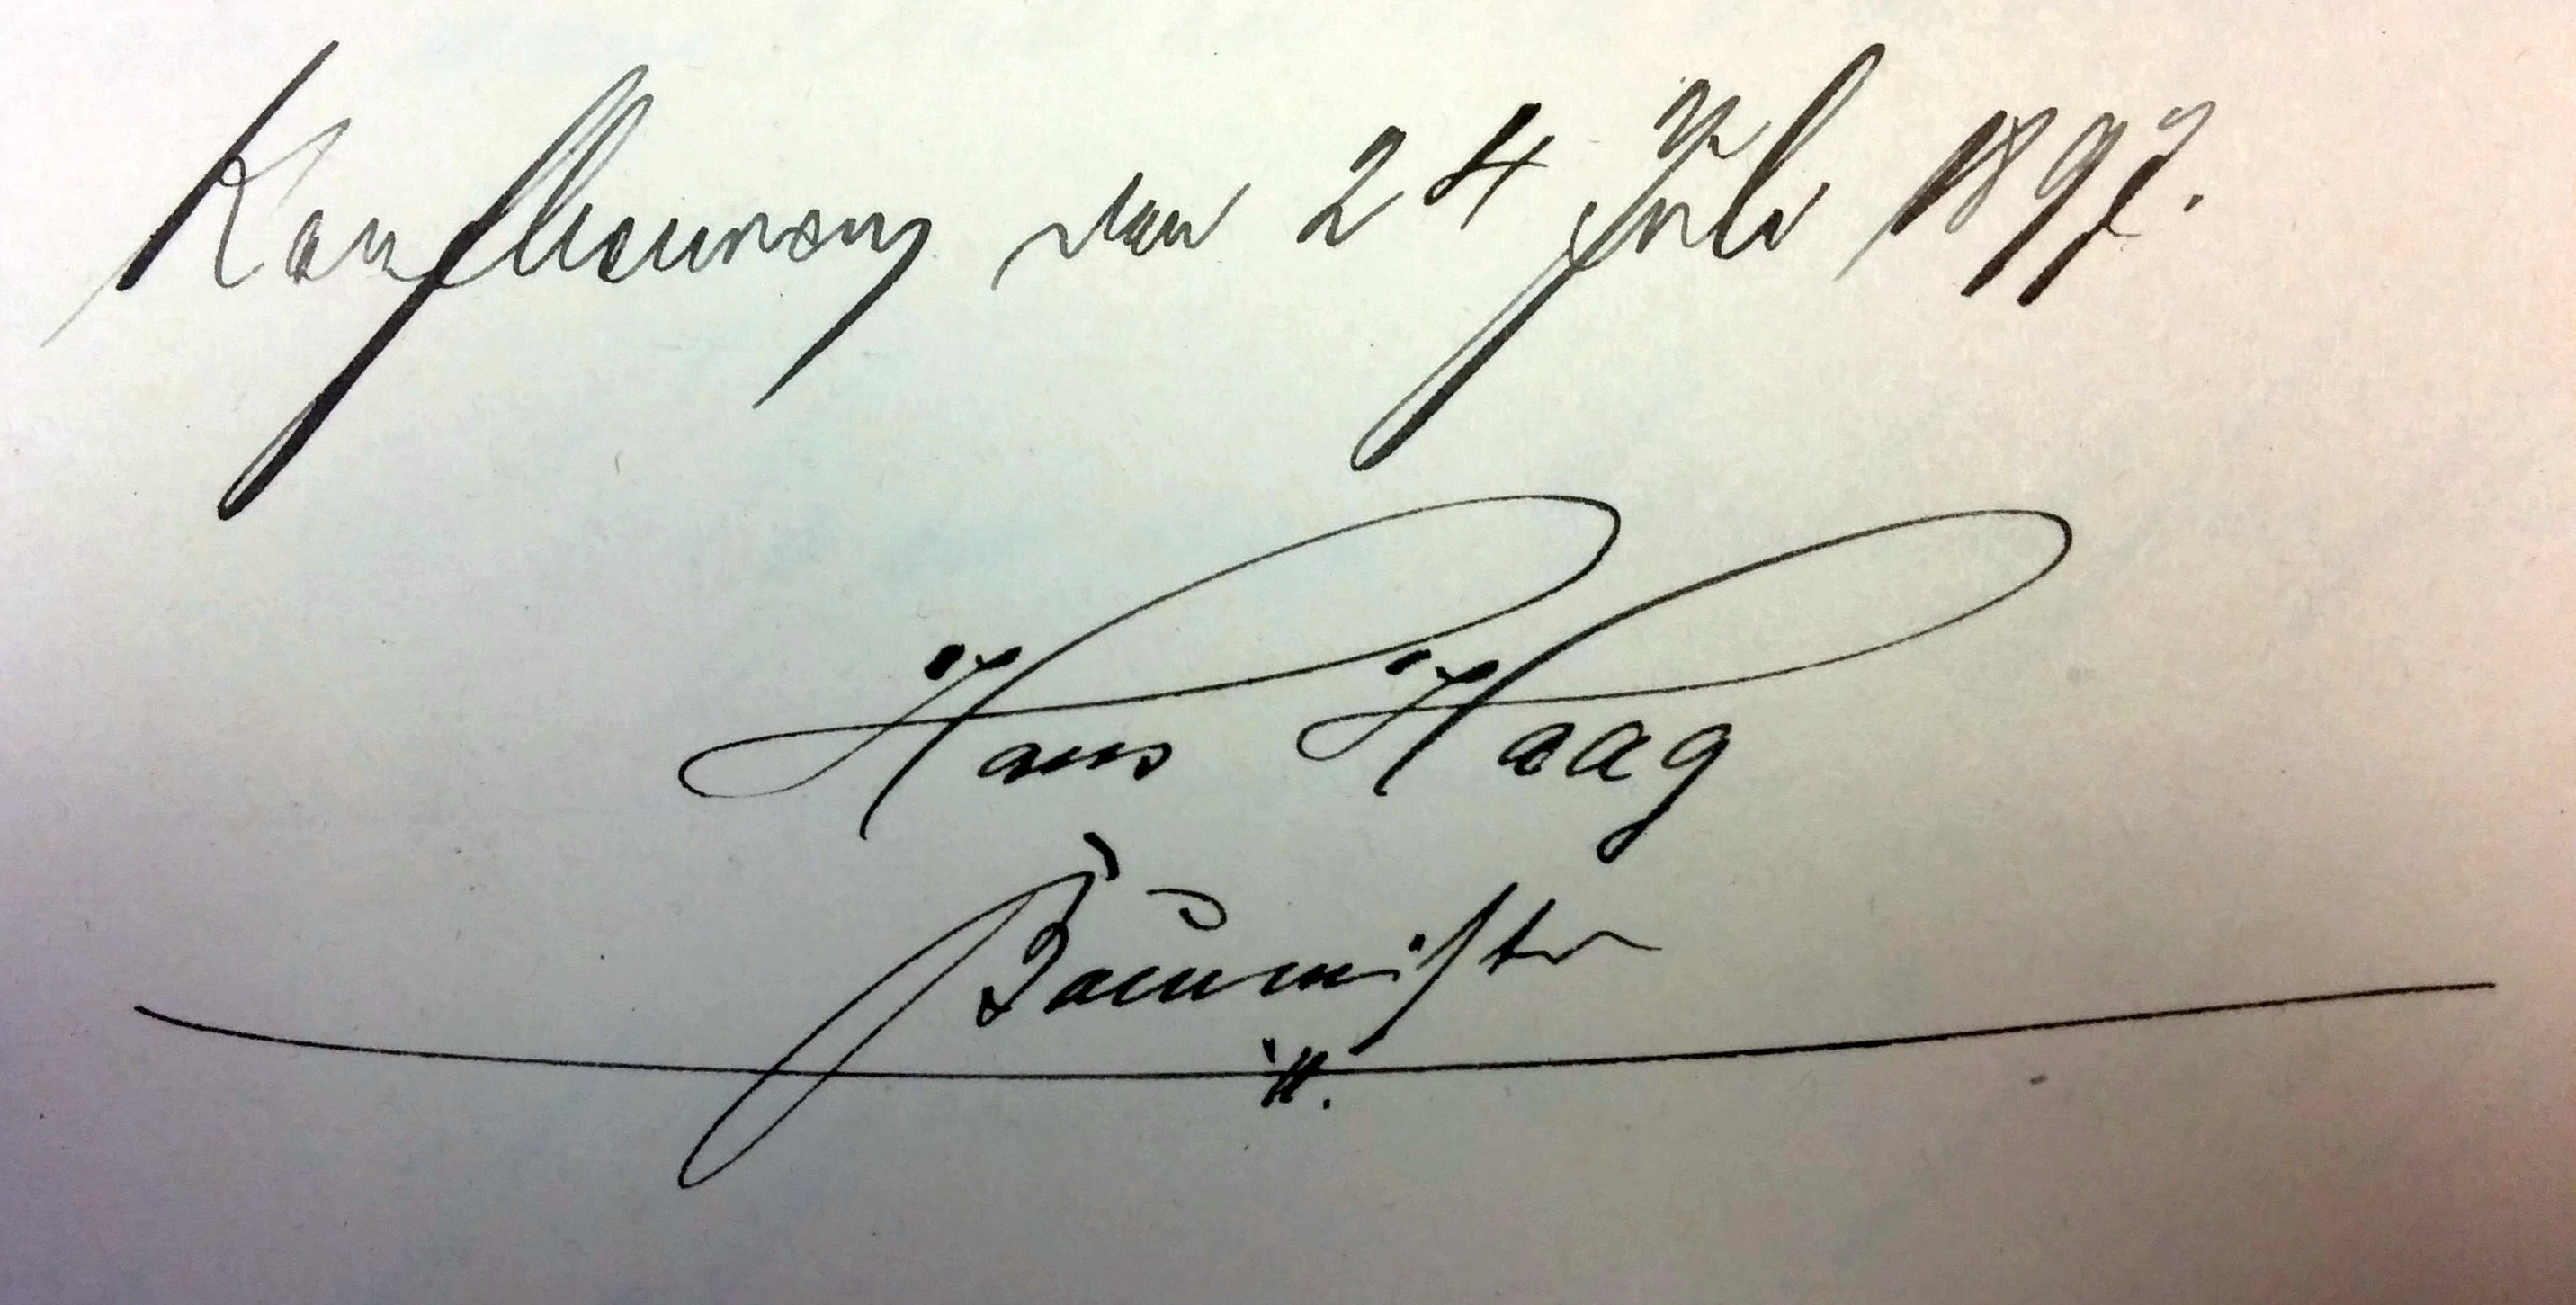 Kaufbeuren den 24 Juli 1897.
Hans Haag
Baumeister